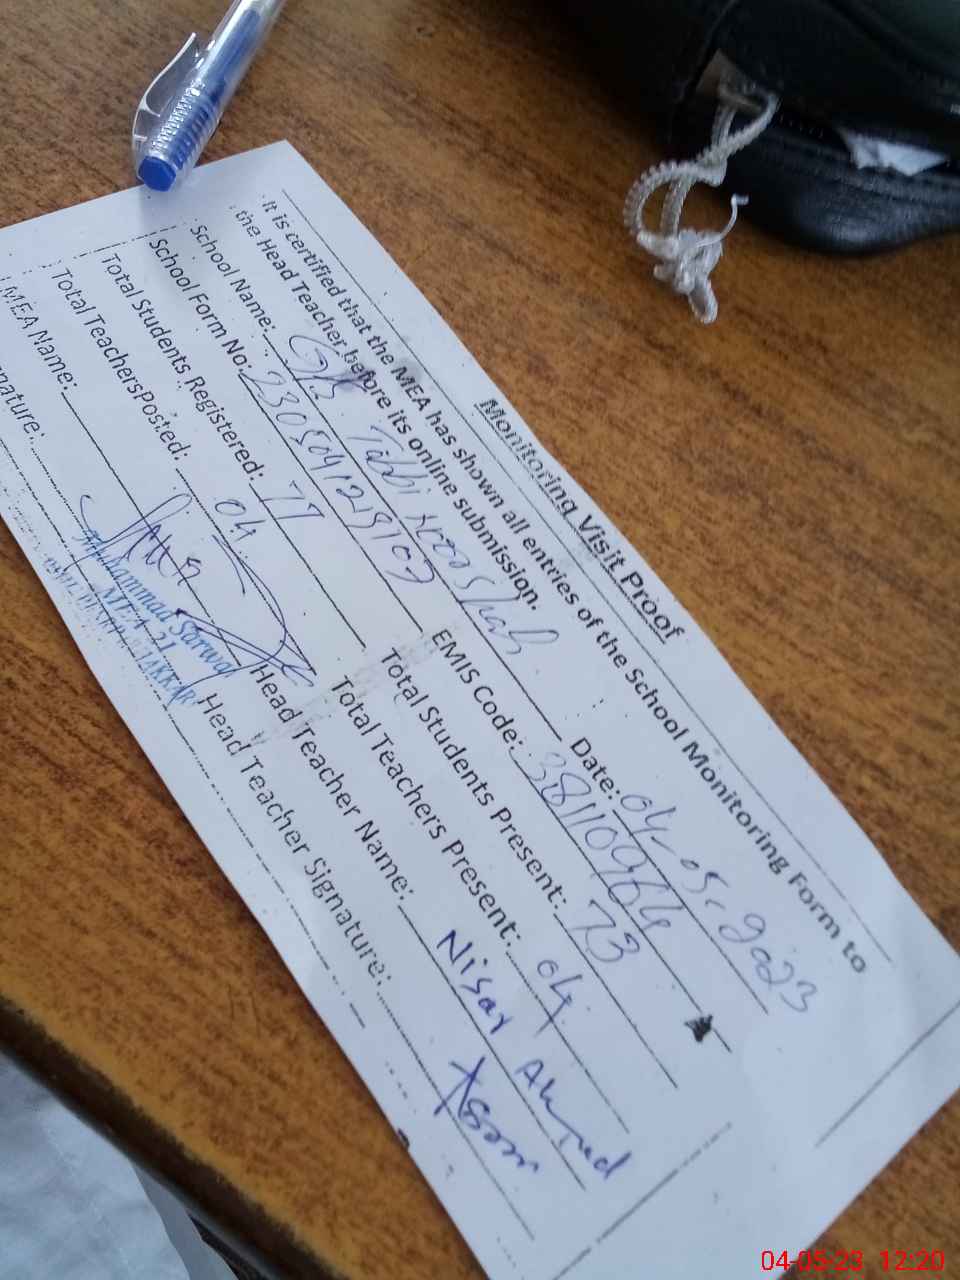 Monitoring Visit Proof
It is certified that the MEA has shown all entries of the School Monitoring Form to
the Head Teacher before its online submission.
School Name: GPS Tabbi Noor Shah Date: 04-05-2023
School Form No. EMIS Code: 38110964
Total Students Registered: 77 Total Students Present: 73
Total TeachersPosted: 04 Total Teachers Present: 04
MEA Name: Head Teacher Name: Nisar Ahmed
nature: Head Teacher Signature:
Muhammad Sarwar
MEA 21
04-05-23 12:20